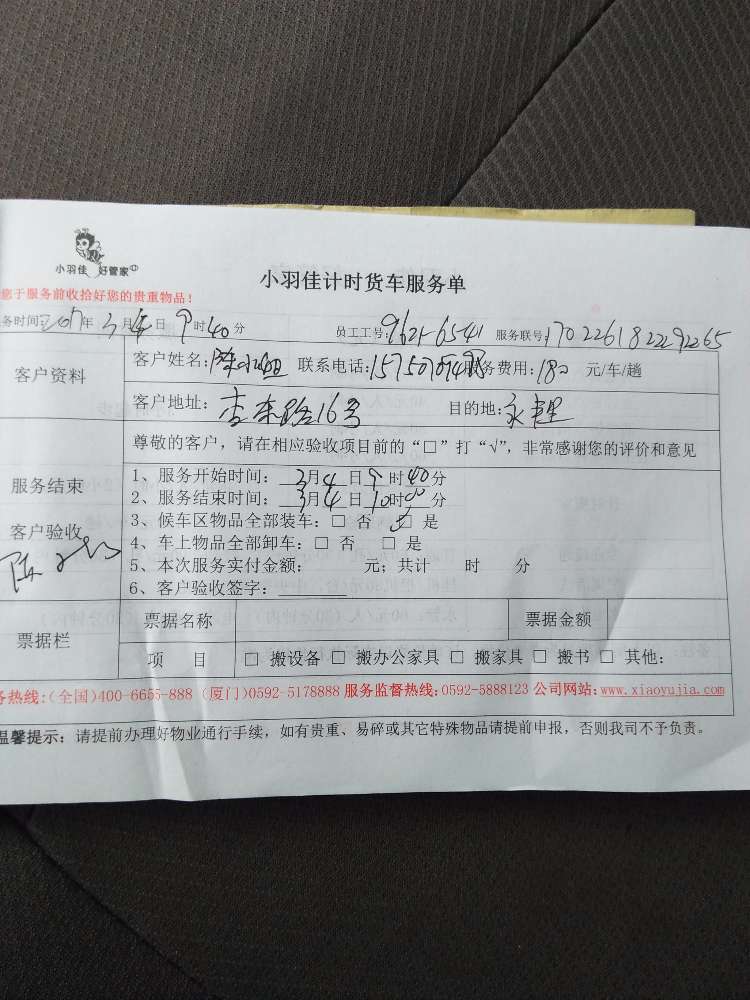 小羽佳 好管家
小羽佳计时货车服务单
您于服务前收拾好您的贵重物品！
务时间：2017年3月4日9时40分 员工工号：9621-6541 服务联号：1702261822292265
客户资料 客户姓名：陈小姐 联系电话： 服务费用：180 元/车/趟
客户地址：杏东路16号 目的地：
尊敬的客户，请在相应验收项目前的“□”打“√”，非常感谢您的评价和意见
服务结束
客户验收
1、服务开始时间：3月4日9时40分
2、服务结束时间：3月4日10时00分
3、候车区物品全部装车：□ 否 ☑ 是
4、车上物品全部卸车：□ 否 □ 是
5、本次服务实付金额： 元；共计 时 分
6、客户验收签字：
票据栏 票据名称 票据金额
项 目 □ 搬设备 □ 搬办公家具 □ 搬家具 □ 搬书 □ 其他：
务热线：（全国）400-6655-888（厦门）0592-5178888 服务监督热线：0592-5888123 公司网站：www.xiaoyujia.com
温馨提示：请提前办理好物业通行手续，如有贵重、易碎或其它特殊物品请提前申报，否则我司不予负责。